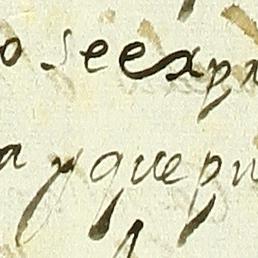 o se expr
a y que pu